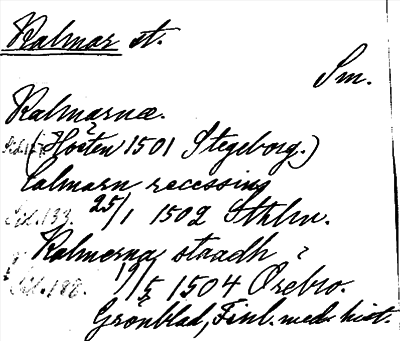 Kalmar st.
Sm.
Kalmarna.
(Hösten 1501 Stegeborg.)
Calmarn recessing
Sid. 133. 25/1 1502 Sthlm.
Kalmerna staadh
Sid. 188. 19/5 1504 Örebro.
Grönblad, Finl. med. hist.